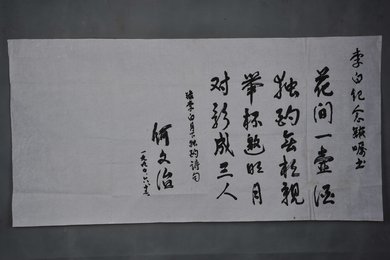 李白纪念馆嘱书
花间一壶酒
独酌无相親
举杯邀明月
对影成三人
录李白月下独酌诗句
何文治
一九九〇.六.